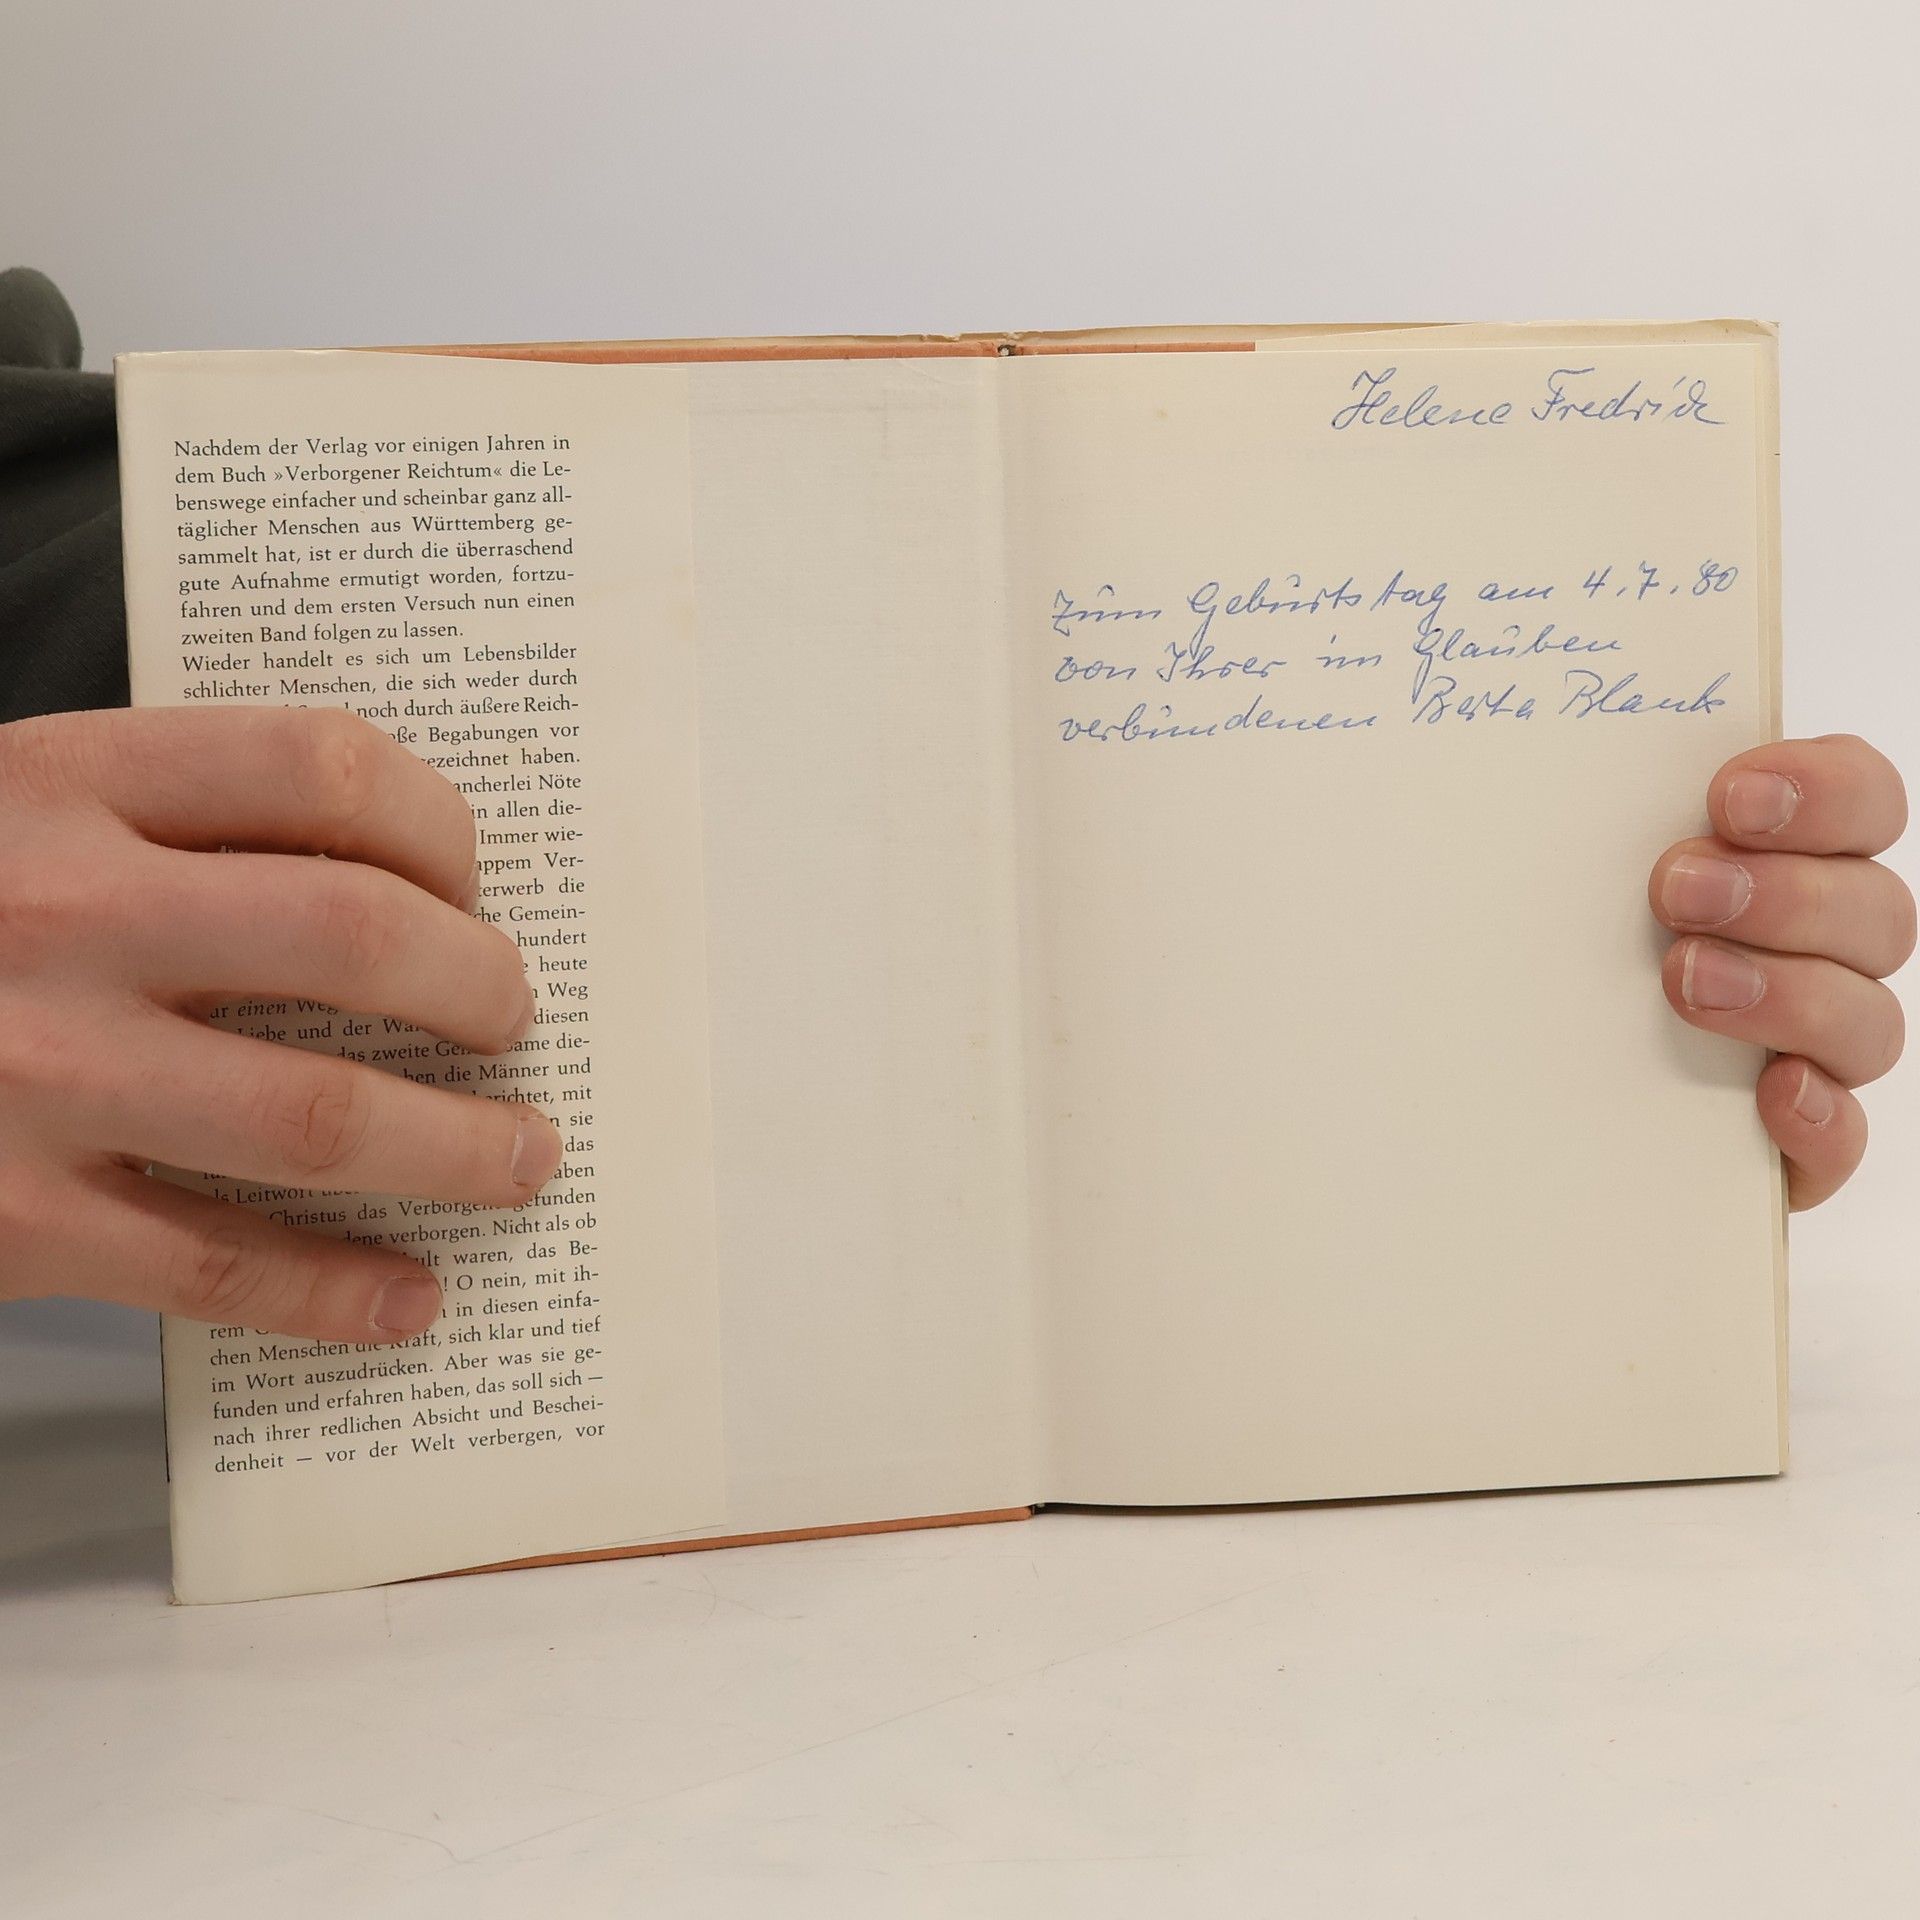 Nachdem der Verlag vor einigen Jahren in
dem Buch »Verborgener Reichtum« die Le-
benswege einfacher und scheinbar ganz all-
täglicher Menschen aus Württemberg ge-
sammelt hat, ist er durch die überraschend
gute Aufnahme ermutigt worden, fortzu-
fahren und dem ersten Versuch nun einen
zweiten Band folgen zu lassen.
Wieder handelt es sich um Lebensbilder
schlichter Menschen, die sich weder durch
noch durch äußere Reich-
Begabungen vor
haben.
Nöte
in allen die-
Immer wie-
Ver-
die
Gemein-
hundert
heute
Weg
einen
diesen
und der
das zweite die-
die Männer und
mit
sie
das
Leitwort
Christus das gefunden
verborgen. Nicht als ob
waren, das Be-
! O nein, mit ih-
in diesen einfa-
rem
chen Menschen die Kraft, sich klar und tief
im Wort auszudrücken. Aber was sie ge-
funden und erfahren haben, das soll sich —
nach ihrer redlichen Absicht und Beschei-
denheit — vor der Welt verbergen, vor
Helene Fredrich
Zum Geburtstag am 4.7.'80
von Ihrer im Glauben
verbundenen Berta Blank